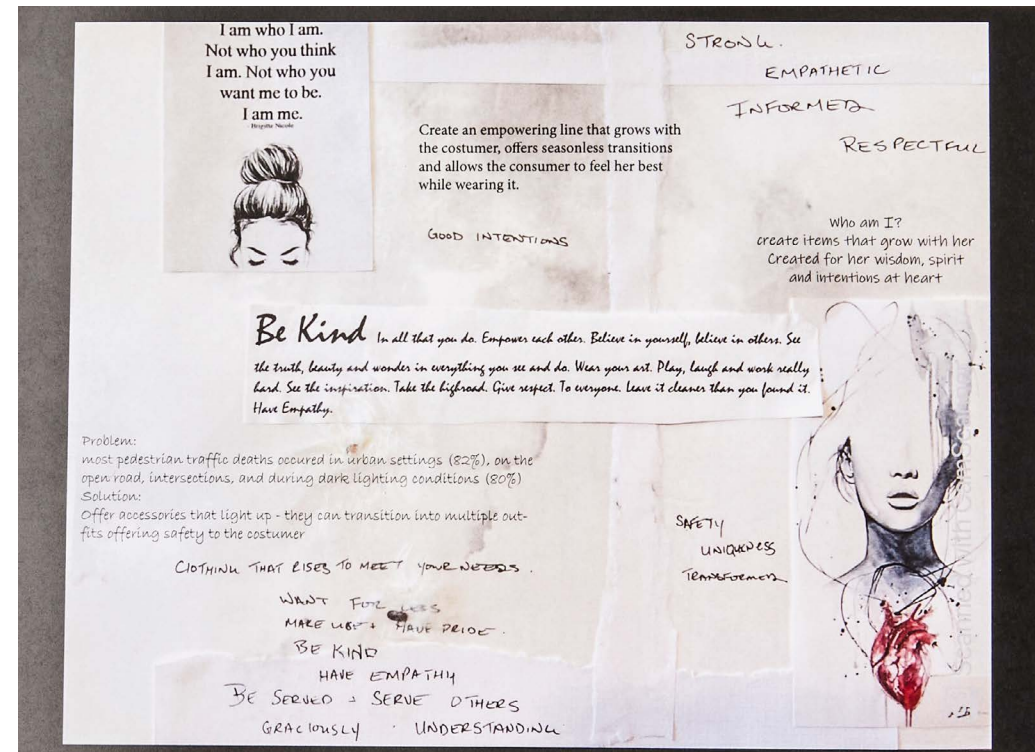 I am who I am.
Not who you think
I am. Not who you
want me to be.
I am me.
- Brigitte Nicole
STRONG.
EMPATHETIC
INFORMED
RESPECTFUL
Create an empowering line that grows with
the costumer, offers seasonless transitions
and allows the consumer to feel her best
while wearing it.
GOOD INTENTIONS
Who am I?
create items that grow with her
Created for her wisdom, spirit
and intentions at heart
Be Kind In all that you do. Empower each other. Believe in yourself, believe in others. See
the truth, beauty and wonder in everything you see and do. Wear your art. Play, laugh and work really
hard. See the inspiration. Take the highroad. Give respect. To everyone. Leave it cleaner than you found it.
Have Empathy.
Problem:
most pedestrian traffic deaths occured in urban settings (82%), on the
open road, intersections, and during dark lighting conditions (80%)
Solution:
Offer accessories that light up - they can transition into multiple out-
fits offering safety to the costumer
SAFETY
UNIQUENESS
TRANSFORMED
CLOTHING THAT RISES TO MEET YOUR NEEDS.
WANT FOR LESS
MAKE USE + HAVE PRIDE.
BE KIND
HAVE EMPATHY
BE SERVED + SERVE OTHERS
GRACIOUSLY · UNDERSTANDING
Scanned with CamSca